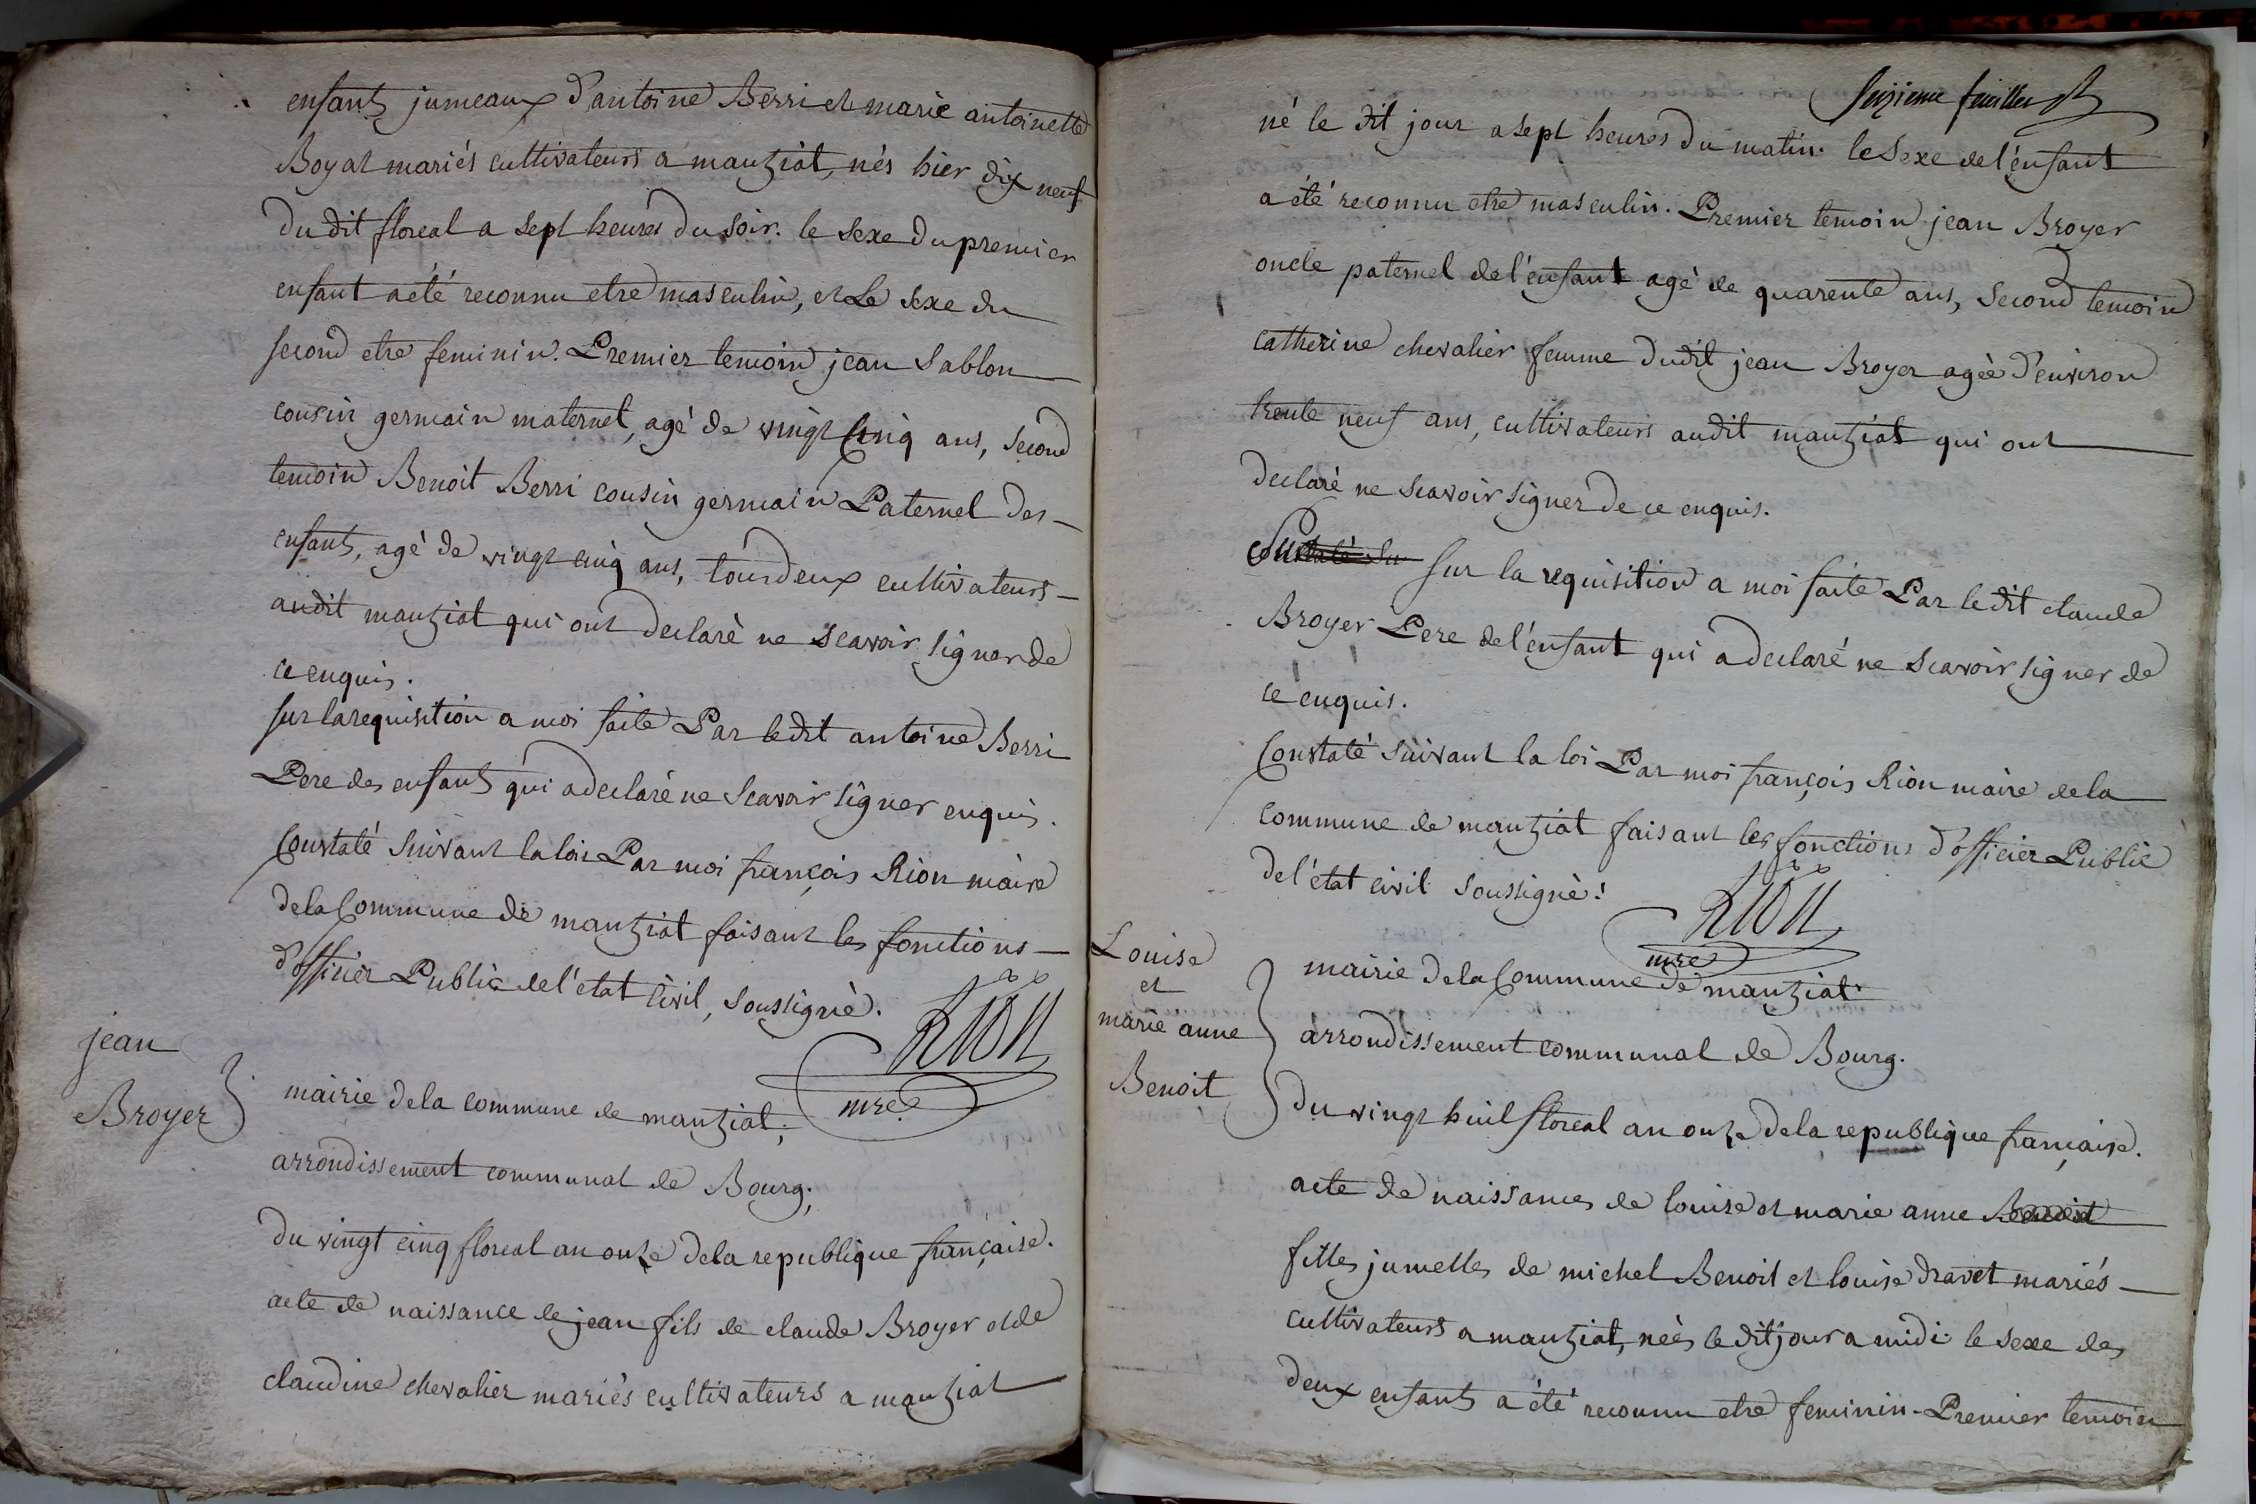 enfants jumeaux d'antoine Berri et marie antoinette
Boyat mariés cultivateurs a mantziat, nés hier dix neuf
du dit floreal a sept heures du soir. le sexe du premier
enfant a été reconnu etre masculin, et Le sexe du
second etre feminin. Premier temoin jean Sablon
cousin germain maternel, agé de vingt cinq ans, second
temoin Benoit Berri cousin germain Paternel des
enfants, agé de vingt cinq ans, tous deux cultivateurs
audit mantziat qui ont declaré ne scavoir signer de
ce enquis.
sur la requisition a moi faite Par ledit antoine Berri
Pere des enfants qui a declaré ne scavoir signer enquis.
Constaté suivant la loi Par moi françois Rion maire
de la Commune de mantziat faisant les fonctions
d'officier Public de l'état Civil, soussigné.
Rion
mre
jean
Broyer
mairie de la commune de mantziat,
arrondissement communal de Bourg,
du vingt cinq floreal an onze de la republique française.
acte de naissance de jean fils de claude Broyer et de
claudine chevalier mariés cultivateurs a mantziat
Seizieme feuillet
né le dit jour a sept heures du matin. le sexe de l'enfant
a été reconnu etre masculin. Premier temoin jean Broyer
oncle paternel de l'enfant agé de quarente ans, second temoin
catherine chevalier femme dudit jean Broyer agée d'environ
trente neuf ans, cultivateurs audit mantziat qui ont
declaré ne scavoir signer de ce enquis.
sur la requisition a moi faite Par ledit claude
Broyer Pere de l'enfant qui a declaré ne scavoir signer de
ce enquis.
Constaté suivant la loi Par moi françois Rion maire de la
commune de mantziat faisant les fonctions d'officier Public
de l'état civil soussigné.
Rion
mre
Louise
et
marie anne
Benoit
mairie de la Commune de mantziat
arrondissement communal de Bourg.
du vingt huit floreal an onze de la republique française.
acte de naissances de louise et marie anne Benoit
filles jumelles de michel Benoit et louise dravet mariés
cultivateurs a mantziat, nées le dit jour a midi le sexe des
deux enfants a été reconnu etre feminin - Premier temoin